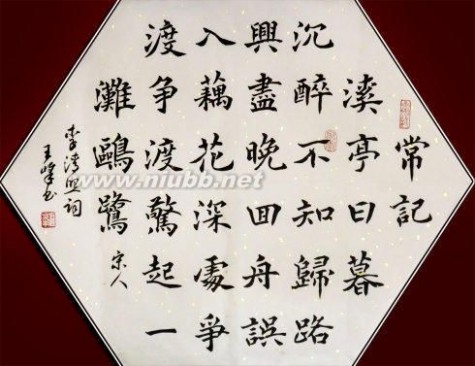 常記
溪亭日暮
沉醉不知歸路
興盡晚回舟誤
入藕花深處爭
渡争渡驚起一
灘鷗鷺 宋人
李清照词
王峰书
www.niubb.net